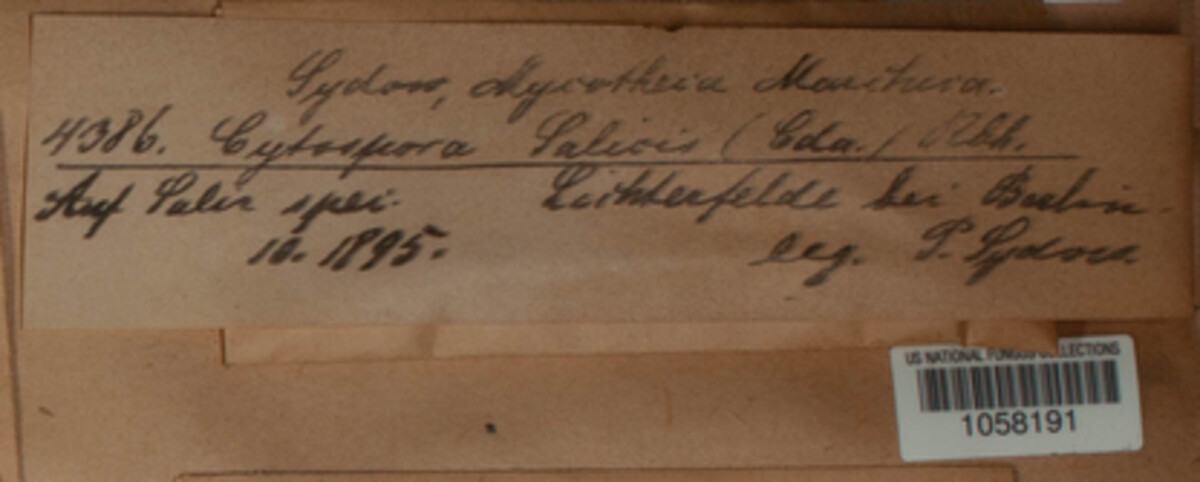 Sydow, Mycotheca Marchica.
4386. Cytospora Salicis (Cda.) Rbh.
Auf Salix spec. Lichterfelde bei Berlin.
10. 1895. leg. P. Sydow.
US NATIONAL FUNGUS COLLECTIONS
1058191